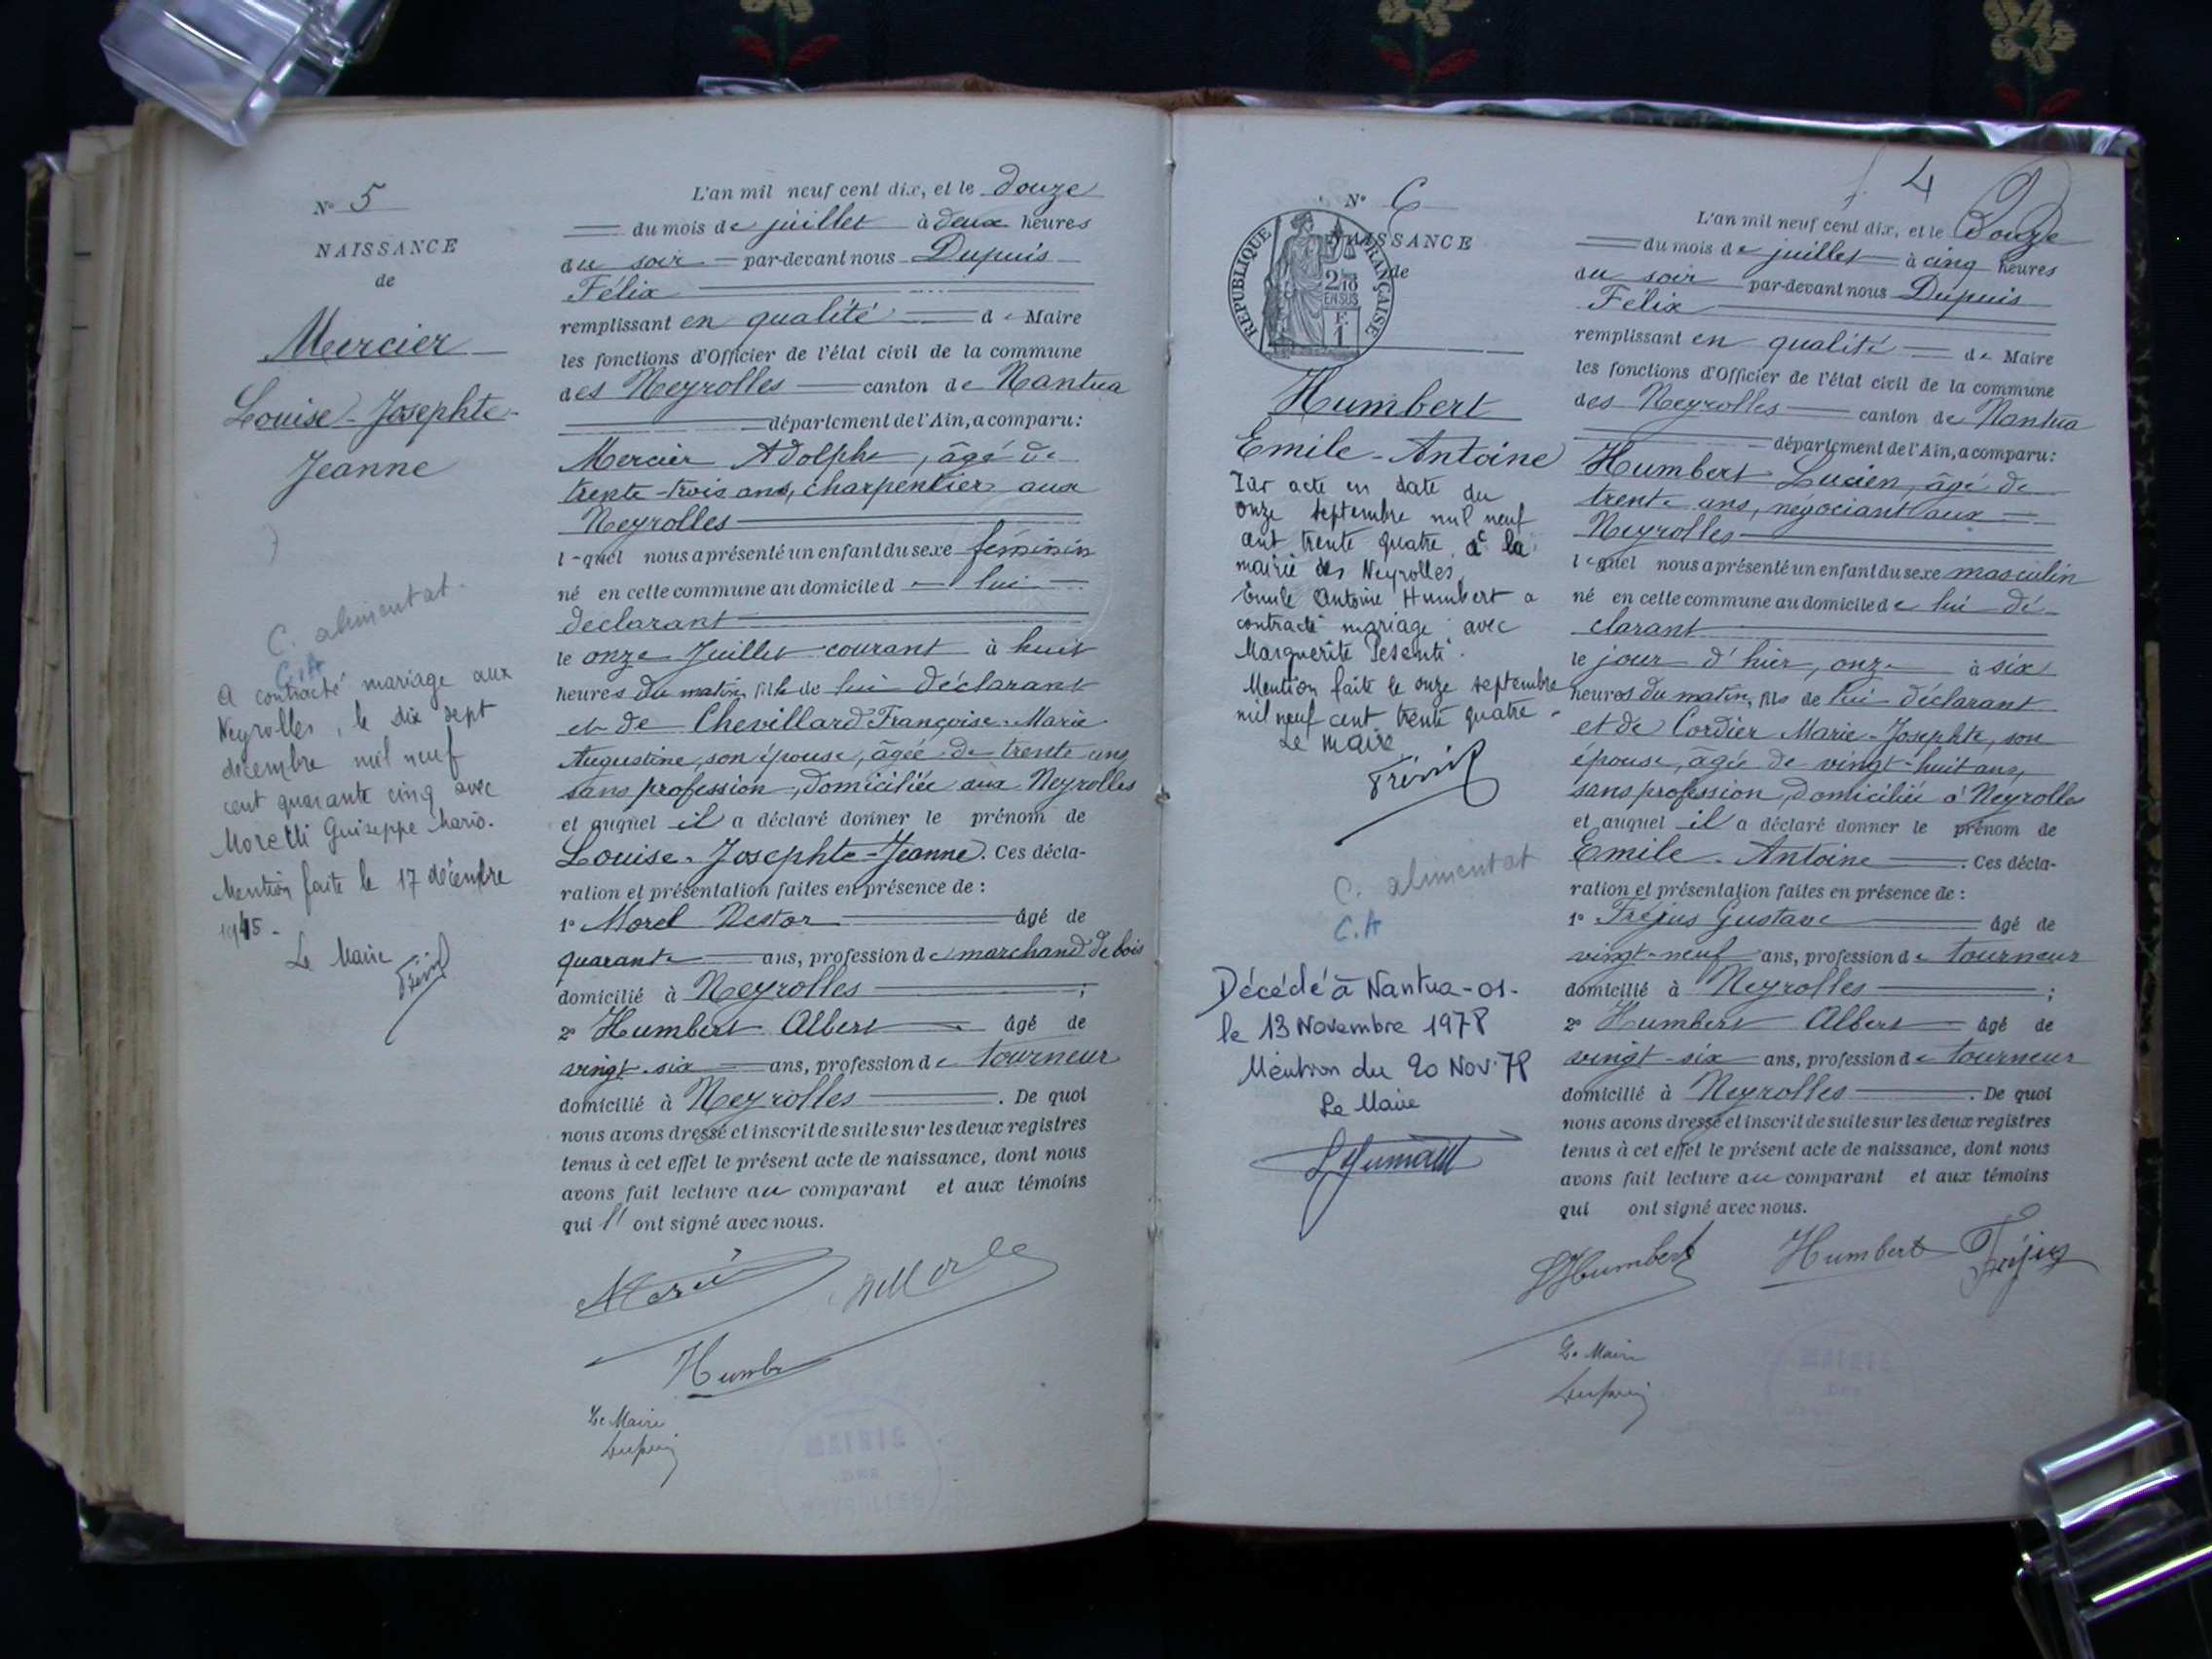 N° 5
NAISSANCE
de
Mercier
Louise-Josephte-
Jeanne
C. alimentat.
C.A
a contracté mariage aux
Neyrolles, le dix sept
décembre mil neuf
cent quarante cinq avec
Moretti Guiseppe Mario.
Mention faite le 17 décembre
1945.
Le Maire
L'an mil neuf cent dix, et le douze
du mois de juillet à deux heures
du soir par-devant nous Dupuis
Félix
remplissant en qualité de Maire
les fonctions d'Officier de l'état civil de la commune
des Neyrolles canton de Nantua
département de l'Ain, a comparu:
Mercier Adolphe, âgé de
trente-trois ans, charpentier aux
Neyrolles
lequel nous a présenté un enfant du sexe féminin
né en cette commune au domicile de lui
déclarant
le onze Juillet courant à huit
heures du matin, fille de lui déclarant
et de Chevillard Françoise-Marie
Augustine, son épouse, âgée de trente ans,
sans profession, domiciliée aux Neyrolles
et auquel il a déclaré donner le prénom de
Louise-Josephte-Jeanne. Ces décla-
ration et présentation faites en présence de :
1° Morel Nestor âgé de
quarante ans, profession de marchand de bois
domicilié à Neyrolles ;
2° Humbert Albert âgé de
vingt-six ans, profession de tourneur
domicilié à Neyrolles . De quoi
nous avons dressé et inscrit de suite sur les deux registres
tenus à cet effet le présent acte de naissance, dont nous
avons fait lecture au comparant et aux témoins
qui l'ont signé avec nous.
Humbert
Le Maire
Dupuis
4
N° 6
NAISSANCE
de
REPUBLIQUE FRANÇAISE
2/10
EN SUS
F.
1
Humbert
Emile-Antoine
Par acte en date du
onze septembre mil neuf
cent trente quatre à la
mairie des Neyrolles,
Emile Antoine Humbert a
contracté mariage avec
Marguerite Pesenti.
Mention faite le onze septembre
mil neuf cent trente quatre.
Le maire
C. alimentat
C.A
Décédé à Nantua-01-
le 13 Novembre 1978
Mention du 20 Nov. 78
Le Maire
L'an mil neuf cent dix, et le Douze
du mois de juillet à cinq heures
du soir par-devant nous Dupuis
Félix
remplissant en qualité de Maire
les fonctions d'Officier de l'état civil de la commune
des Neyrolles canton de Nantua
département de l'Ain, a comparu:
Humbert Lucien, âgé de
trente ans, négociant aux
Neyrolles
lequel nous a présenté un enfant du sexe masculin
né en cette commune au domicile de lui dé-
clarant
le jour d'hier, onze à six
heures du matin, fils de lui déclarant
et de Cordier Marie-Josephte, son
épouse, âgée de vingt-huit ans,
sans profession, domiciliée à Neyrolles
et auquel il a déclaré donner le prénom de
Emile-Antoine . Ces décla-
ration et présentation faites en présence de :
1° Fréjus Gustave âgé de
vingt-neuf ans, profession de tourneur
domicilié à Neyrolles ;
2° Humbert Albert âgé de
vingt-six ans, profession de tourneur
domicilié à Neyrolles . De quoi
nous avons dressé et inscrit de suite sur les deux registres
tenus à cet effet le présent acte de naissance, dont nous
avons fait lecture au comparant et aux témoins
qui ont signé avec nous.
LHumbert Humbert Fréjus
Le Maire
Dupuis